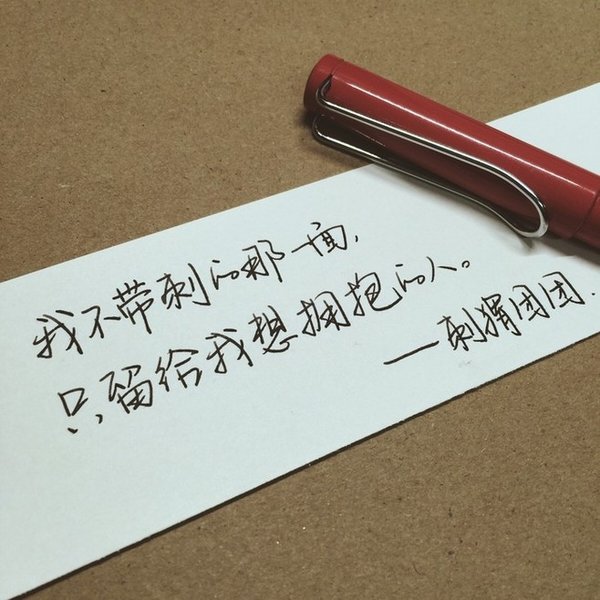 我不带刺的那一面,
只留给我想拥抱的人。
——刺猬团团.